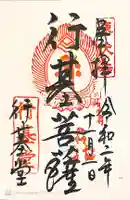 奉拝
令和二年十一月 日
行基菩薩
行基堂